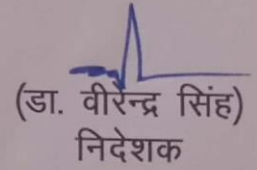 (डा. वीरेन्द्र सिंह)
निदेशक